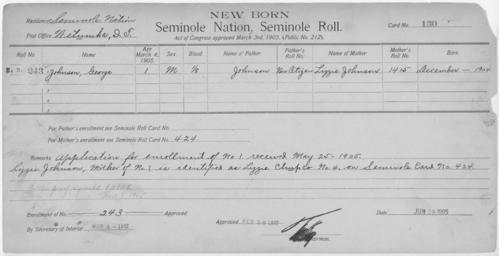 NEW BORN
Residence Seminole Nation
Seminole Nation, Seminole Roll.
Card No. 130
Post Office
Act of Congress approved March 3rd, 1905, (Public No. 212).
Roll No. Name Age March 4, 1905 Sex. Blood Name of Father Father's Roll No. Name of Mother Mother's Roll No. Born.
N.B. 243 Johnson, George 1 M Johnson Non Citizen Lizzie Johnson 1415 December - 1904
For Father's enrollment see Seminole Roll Card No.
For Mother's enrollment see Seminole Roll Card No. 424
Remarks Application for enrollment of No. 1 received May 25 - 1905.
Lizzie Johnson, Mother of No. 1 is identified as Lizzie No. 4, on Seminole Card No. 424
Enrollment of No. 243 Approved
By Secretary of Interior
Approved
Date JUN 1905